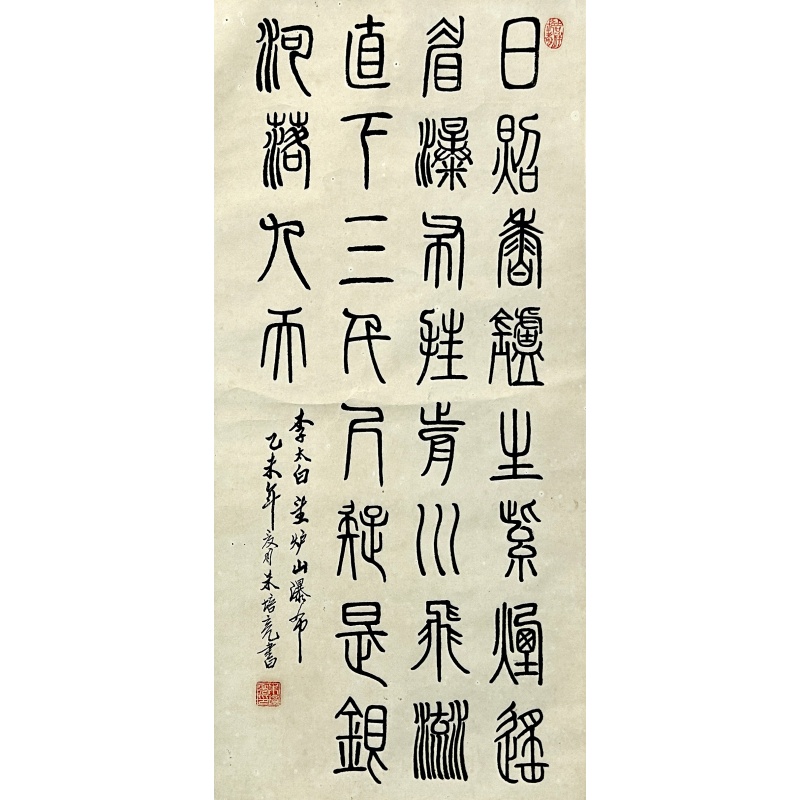 日照香鑪生紫煙遙
看瀑布挂前川飛流
直下三千尺疑是銀
河落九天
李太白望炉山瀑布
乙未年夏月朱培亮書